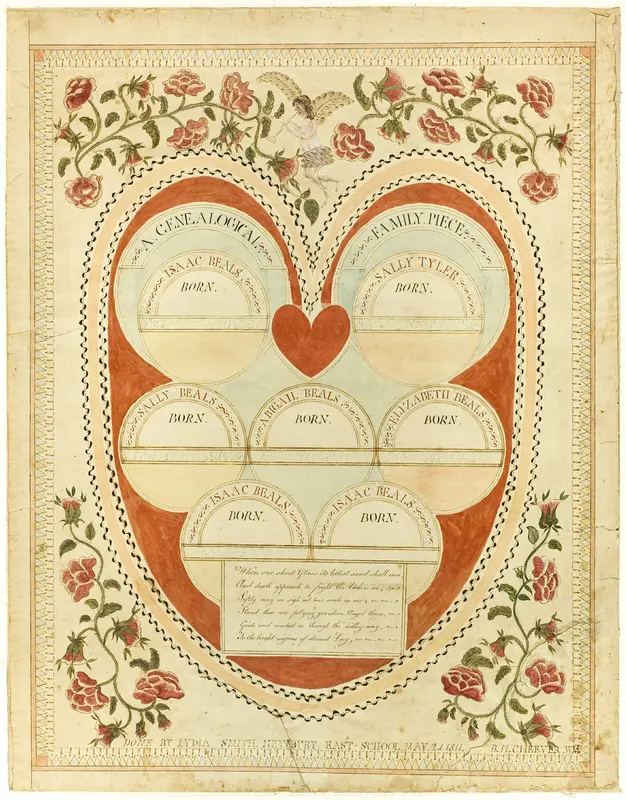 A. GENEALOGICAL FAMILY PIECE
ISAAC BEALS.
BORN.
SALLY TYLER.
BORN.
SALLY BEALS
BORN.
ABIGAIL BEALS
BORN.
ELIZABETH BEALS
BORN.
ISAAC BEALS
BORN.
ISAAC BEALS
BORN.
When our short Glass its latest sand shall run,
And death approach to fright the lookers on,
Softly may we sigh out our souls in air,
Stand thou our pitying guardian Angel there,
Guide and conduct us through the milky way,
To the bright regions of eternal Day.
DONE BY LYDIA SMITH NEWBURY, EAST-SCHOOL MAY 1811. B.H. CHEEVER